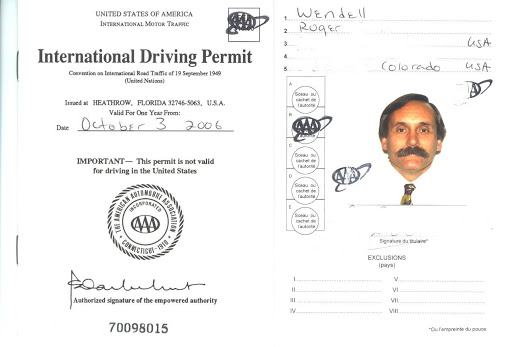 UNITED STATES OF AMERICA
INTERNATIONAL MOTOR TRAFFIC
AAA
International Driving Permit
Convention on International Road Traffic of 19 September 1949
(United Nations)
Issued at HEATHROW, FLORIDA 32746-5063, U.S.A.
Valid For One Year From:
Date October 3 2006
IMPORTANT— This permit is not valid
for driving in the United States
THE AMERICAN AUTOMOBILE ASSOCIATION
INCORPORATED
AAA
CONNECTICUT-1910
Authorized signature of the empowered authority
70098015
1. Wendell
2. Roger
3. USA
4.
5. Colorado USA
A
Sceau ou
cachet de
l'autorité
B
AAA
C
Sceau ou
cachet de
l'autorité
D
Sceau ou
cachet de
l'autorité
E
Sceau ou
cachet de
l'autorité
AAA
Signature du titulaire*
EXCLUSIONS
(pays)
I V
II VI
III VII
IV VIII
*Ou l'empreinte du pouce